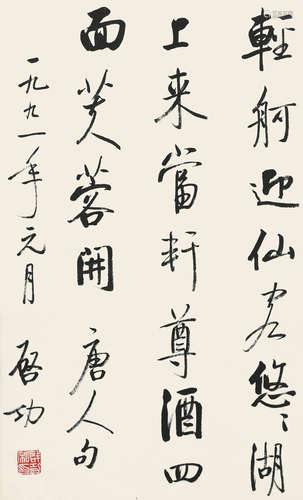 輕舸迎仙客悠〻湖
上来當軒尊酒四
面芙蓉開 唐人句
一九九一年元月
啓功